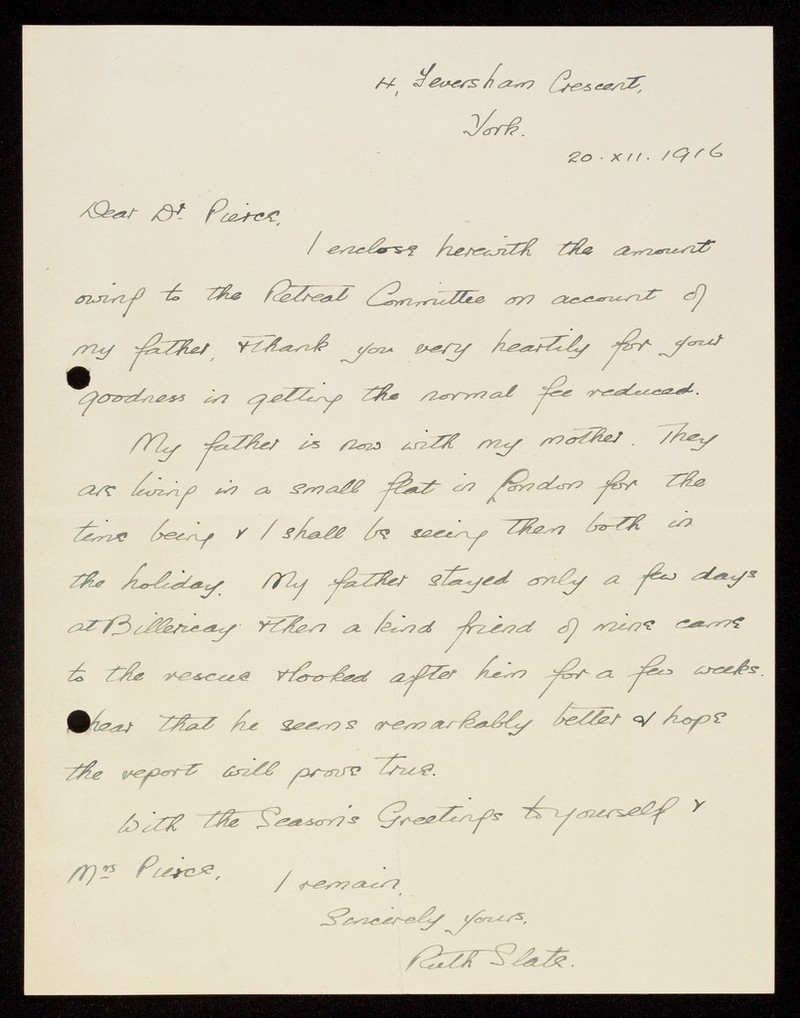 4, Feversham Crescent,
York.
20.XII.1916
Dear Dr. Pierce,
I enclose herewith the amount
owing to the Retreat Committee on account of
my father, & thank you very heartily for your
goodness in getting the normal fee reduced.
My father is now with my mother. They
are living in a small flat in London for the
time being & I shall be seeing them both in
the holiday. My father stayed only a few days
at Billericay & then a kind friend of mine came
to the rescue & looked after him for a few weeks.
hear that he seems remarkably better & hope
the report will prove true.
With the Season's Greetings to yourself &
Mrs Pierce,
I remain,
Sincerely yours,
Ruth Slate.